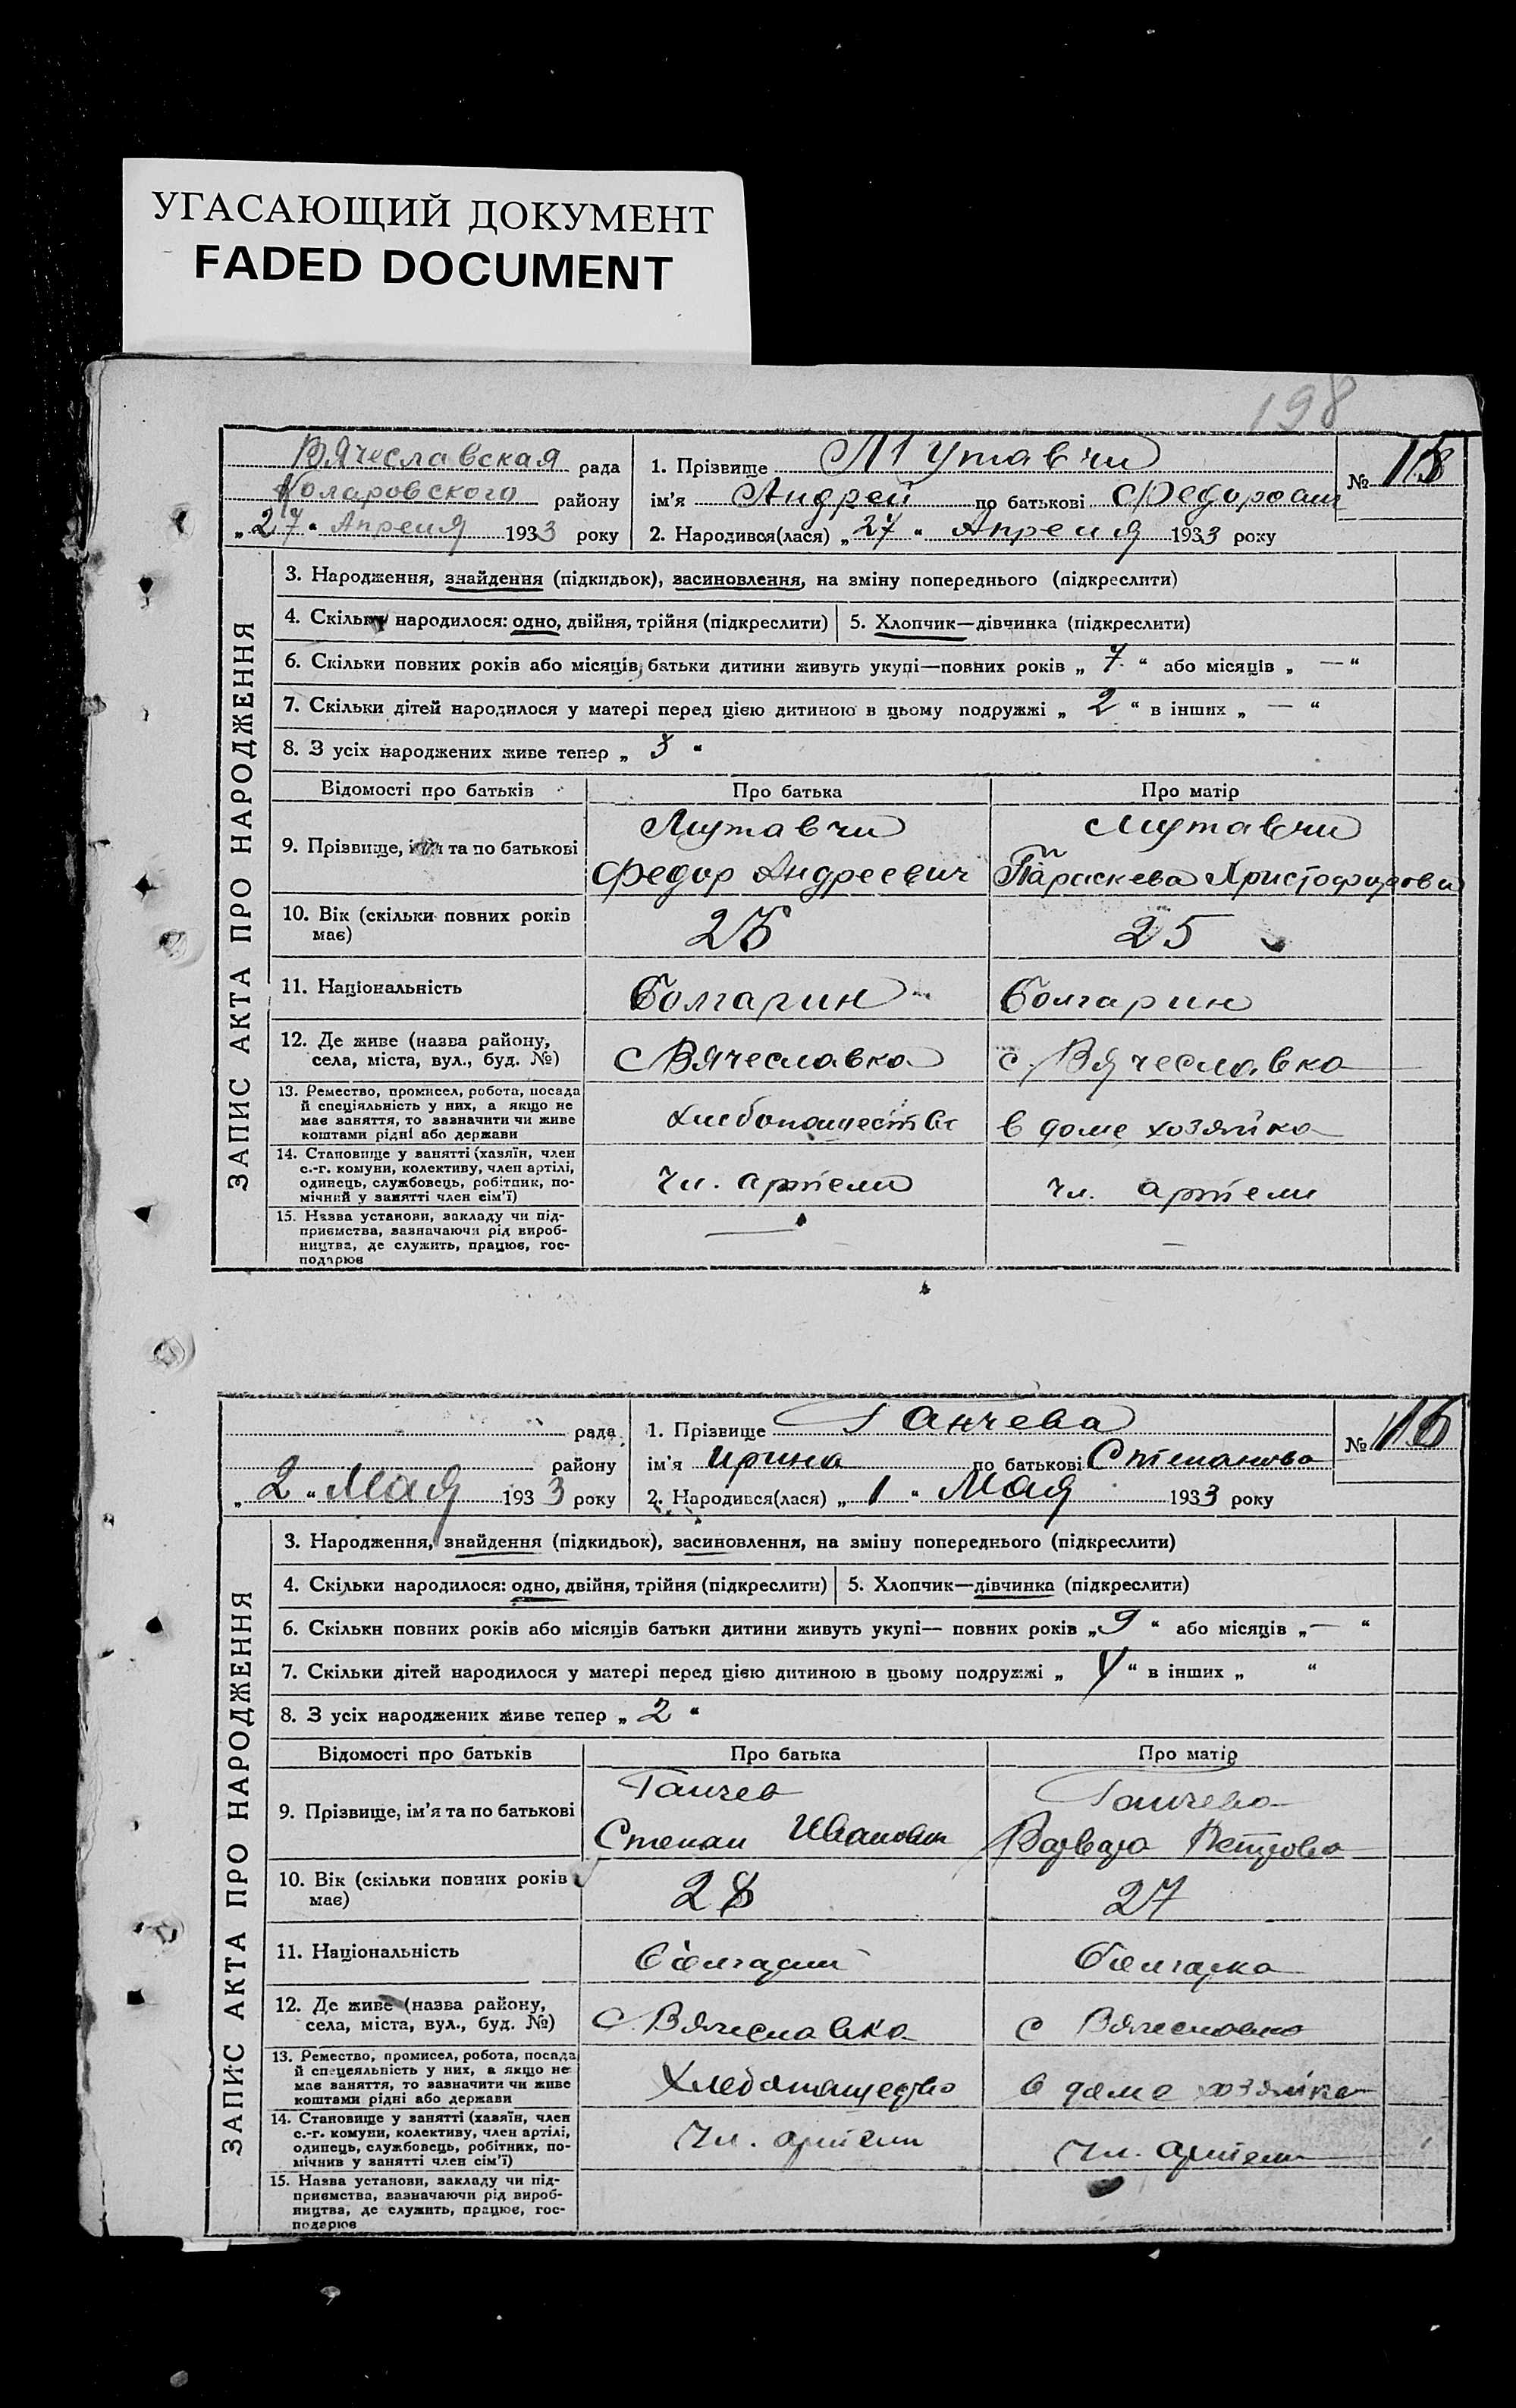 УГАСАЮЩИЙ ДОКУМЕНТ
FADED DOCUMENT
198
Вячеславская рада
Коларовского району
„27“ Апреля 1933 року
1. Прізвище Мутавчи
ім'я Андрей по батькові
2. Народився(лася) „27“ Апреля 1933 року
№
ЗАПИС АКТА ПРО НАРОДЖЕННЯ
3. Народження, знайдення (підкидьок), засиновлення, на зміну попереднього (підкреслити)
4. Скільки народилося: одно, двійня, трійня (підкреслити)
5. Хлопчик—дівчинка (підкреслити)
6. Скільки повних років або місяців, батьки дитини живуть укупі—повних років „7“ або місяців „—“
7. Скільки дітей народилося у матері перед цією дитиною в цьому подружжі „2“ в інших „—“
8. З усіх народжених живе тепер „3“
Відомості про батьків Про батька Про матір
9. Прізвище, ім'я та по батькові
Мутавчи
Федор Андреевич
Мутавчи
Параскева
10. Вік (скільки повних років
має)
25
11. Національність Болгарин Болгарин
12. Де живе (назва району,
села, міста, вул., буд. №)
с Вячеславка с. Вячеславка
13. Ремество, промисел, робота, посада
й спеціяльність у них, а якщо не
має заняття, то зазначити чи живе
коштами рідні або держави
в доме хозяйка
14. Становище у занятті (хазяїн, член
с.-г. комуни, колективу, член артілі,
одинець, службовець, робітник, по-
мічний у занятті член сім'ї)
Чл. артели чл. артели
15. Назва установи, закладу чи під-
приємства, зазначаючи рід вироб-
ництва, де служить, працює, гос-
подарює
— —
рада
району
„2“ Мая 1933 року
1. Прізвище Ганчева
ім'я Ирина по батькові Степанова
2. Народився(лася) „1“ Мая 1933 року
№
ЗАПИС АКТА ПРО НАРОДЖЕННЯ
3. Народження, знайдення (підкидьок), засиновлення, на зміну попереднього (підкреслити)
4. Скільки народилося: одно, двійня, трійня (підкреслити)
5. Хлопчик—дівчинка (підкреслити)
6. Скільки повних років або місяців батьки дитини живуть укупі— повних років „9“ або місяців „—“
7. Скільки дітей народилося у матері перед цією дитиною в цьому подружжі „ “ в інших „ “
8. З усіх народжених живе тепер „2“
Відомості про батьків Про батька Про матір
9. Прізвище, ім'я та по батькові
Ганчев
Степан Иванович
Ганчева
Варвара Петрова
10. Вік (скільки повних років
має)
28 27
11. Національність болгарин болгарка
12. Де живе (назва району,
села, міста, вул., буд. №)
с. Вячеславка с Вячеславка
13. Ремество, промисел, робота, посада
й спецеяльність у них, а якщо не
має заняття, то зазначити чи живе
коштами рідні або держави
Хлебопашество в доме хозяйка
14. Становище у занятті (хазяїн, член
с.-г. комуни, колективу, член артілі,
одинець, службовець, робітник, по-
мічнив у занятті член сім'ї)
Чл. артели Чл. артели
15. Назва установи, закладу чи під-
приємства, зазначаючи рід вироб-
ництва, де служить, працює, гос-
подарює